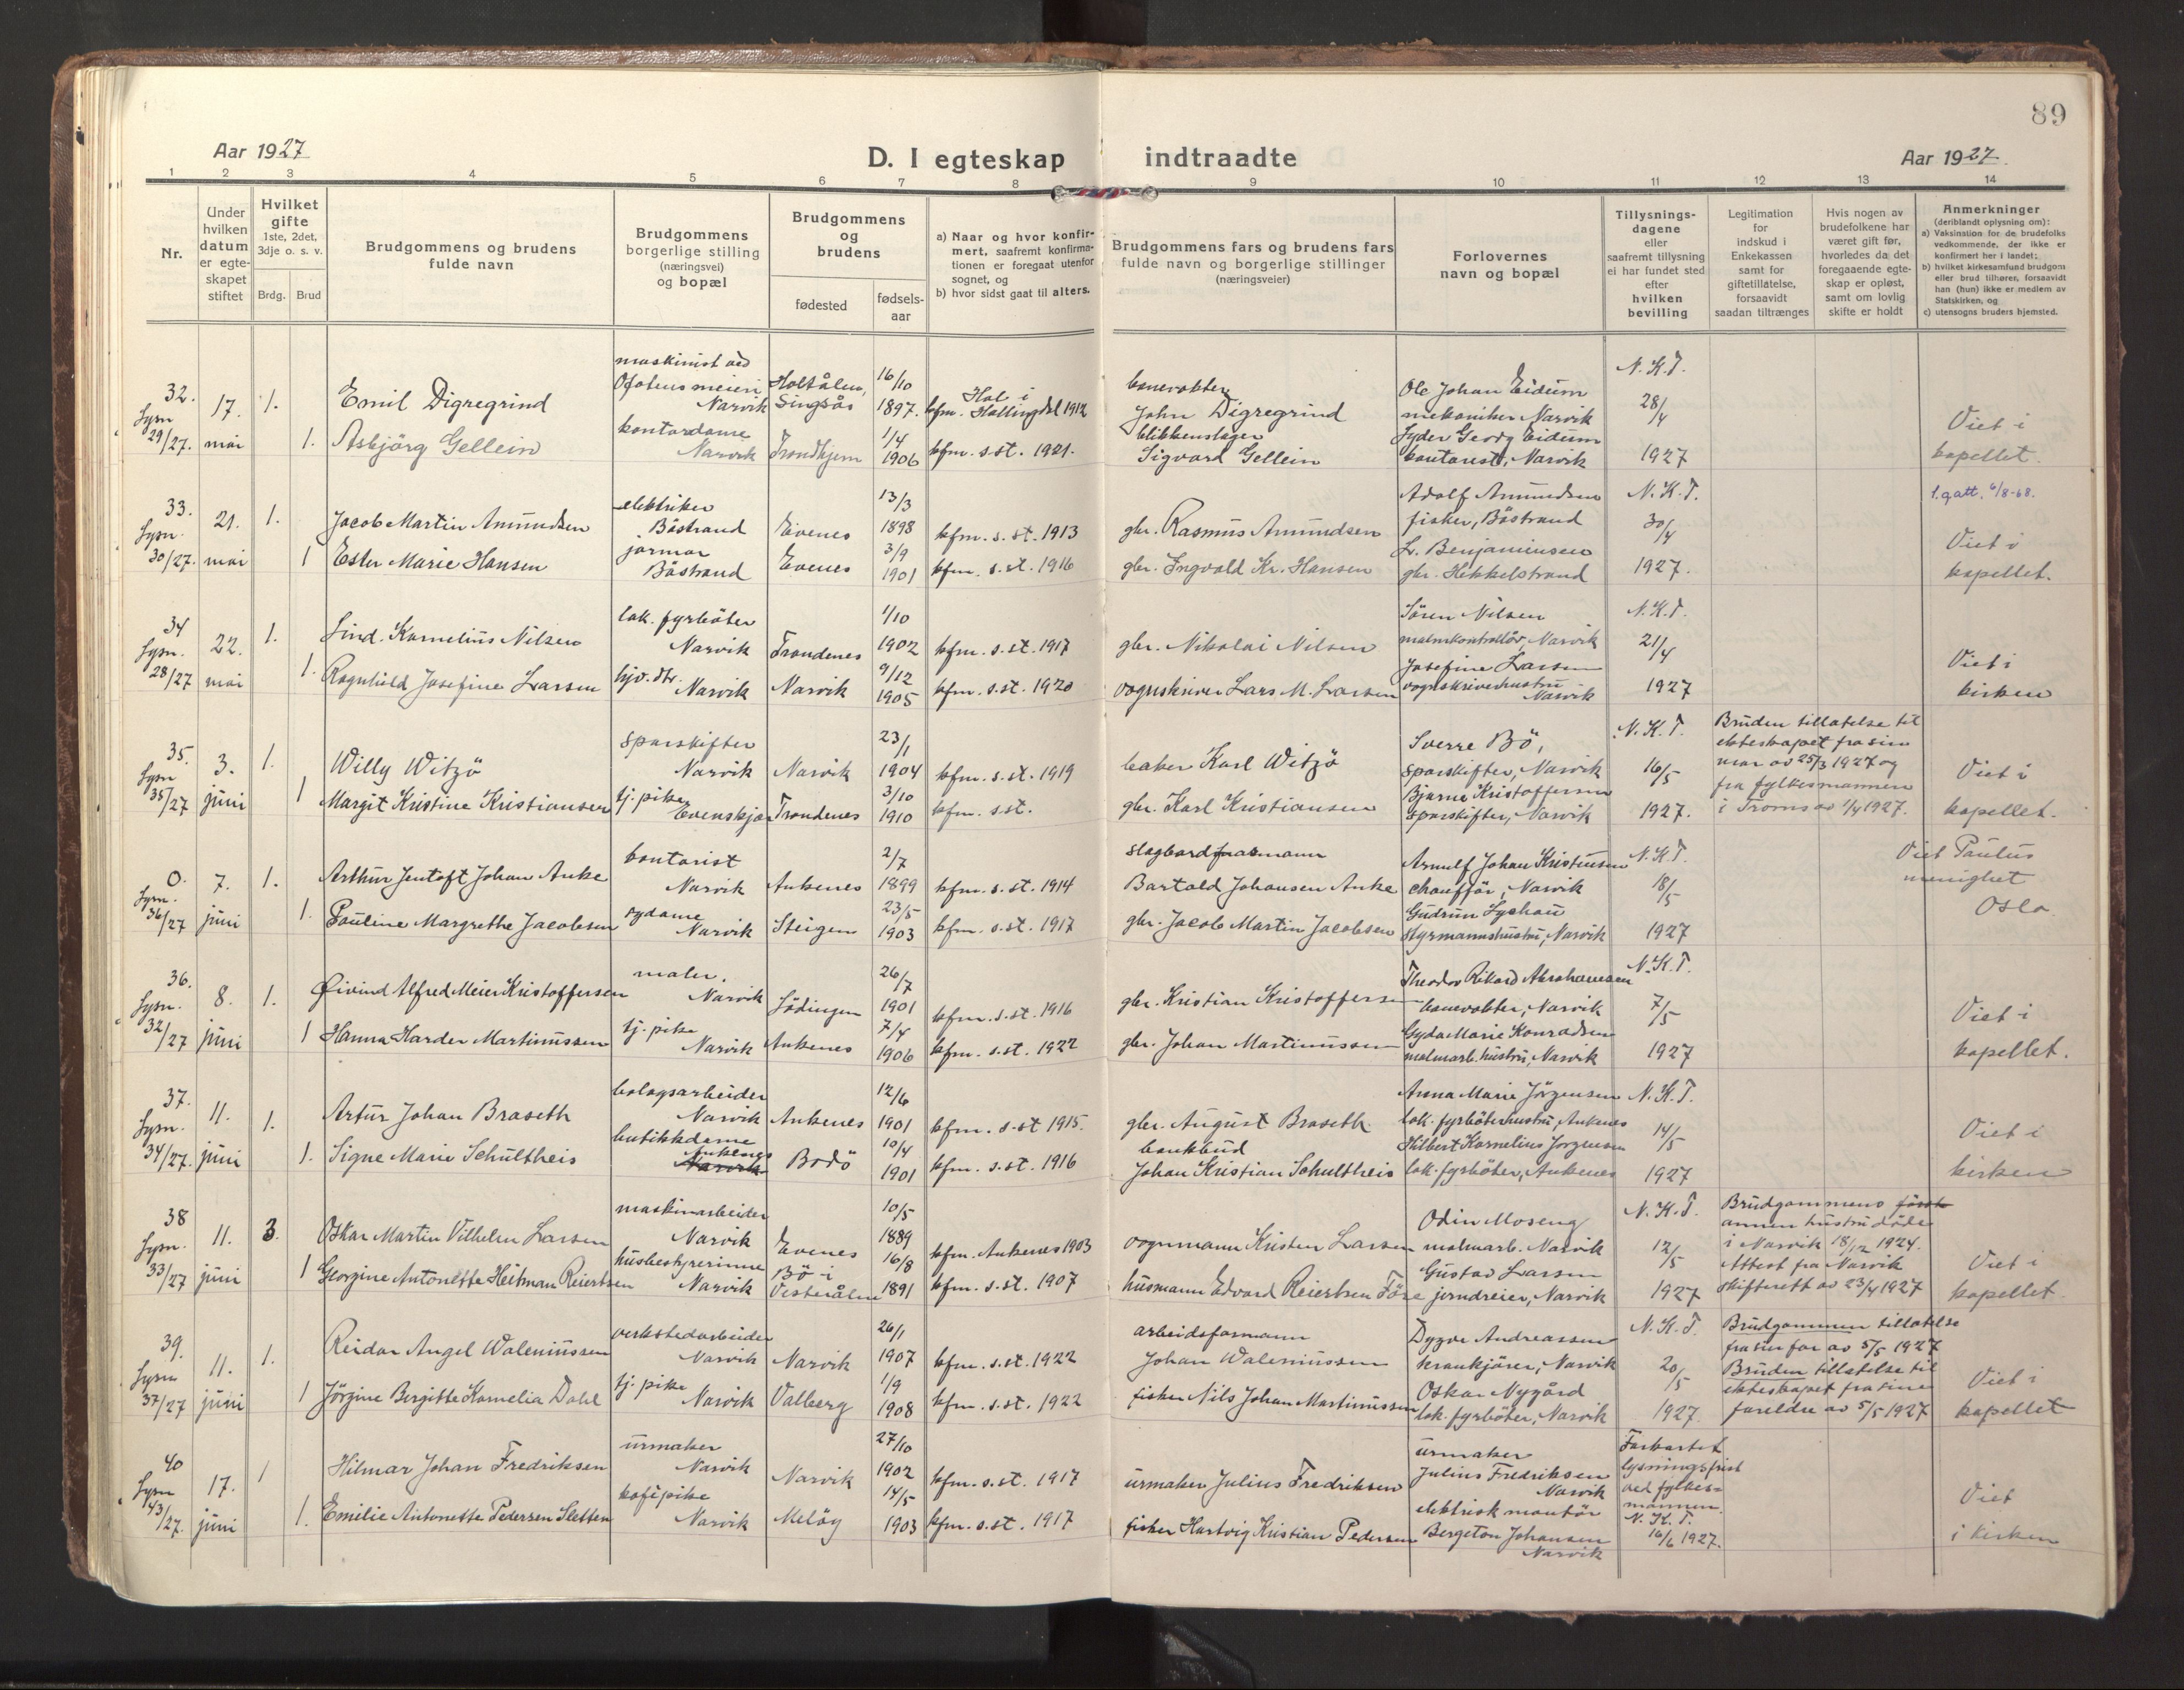 89
Aar 1927
D. I egteskap indtraadte
Aar 1927.
1 2 3 4 5 6 7 8 9 10 11 12 13 14
Nr.
Under hvilken datum er egteskapet stiftet
Hvilket gifte 1ste, 2det, 3dje o. s. v.
Brdg. Brud
Brudgommens og brudens fulde navn
Brudgommens borgerlige stilling (næringsvei) og bopæl
Brudgommens og brudens
fødested
fødsels-aar
a) Naar og hvor konfirmert, saafremt konfirmationen er foregaat utenfor sognet, og
b) hvor sidst gaat til alters.
Brudgommens fars og brudens fars fulde navn og borgerlige stillinger (næringsveier)
Forlovernes navn og bopæl
Tillysningsdagene eller saafremt tillysning ei har fundet sted efter hvilken bevilling
Legitimation for indskud i Enkekassen samt for giftetillatelse, forsaavidt saadan tiltrænges
Hvis nogen av brudefolkene har været gift før, hvorledes da det foregaaende egteskap er opløst, samt om lovlig skifte er holdt
Anmerkninger (deriblandt oplysning om):
a) Vaksination for de brudefolks vedkommende, der ikke er konfirmert her i landet;
b) hvilket kirkesamfund brudgom eller brud tilhører, forsaavidt han (hun) ikke er medlem av Statskirken, og
c) utensogns bruders hjemsted.
32. Lysn 29/27. 17. mai 1. Emil Digregrind maskinist ved Ofotens meieri Narvik Holtålen, Singsås 16/10 1897. kfm. Hol i Hallingdal 1912 banevokter John Digregrind Ole Johan Eidum mekaniker Narvik N.K.T. 28/4 1927
1. Asbjörg Gellein kontordame Narvik Trondhjem 1/4 1906 kfm. s.st. 1921. blikkenslager Sigvard Gellein Lyder Georg Eidum kontorist, Narvik Viet i kapellet.
33. Lysn. 30/27. 21. mai 1. Jacob Martin Amundsen elektriker Båstrand Evenes 13/3 1898 kfm. s.st. 1913 gbr. Rasmus Amundsen Adolf Amundsen fisker, Båstrand N.K.T. 30/4 1927. 1.g.att. 6/8-68.
1 Ester Marie Hansen jormor Båstrand Evenes 3/9 1901 kfm. s.st. 1916 gbr. Ingvald Kr. Hansen L. Benjaminsen gbr. Hekkelstrand Viet i kapellet.
34 Lysn. 28/27 22. mai 1. Lind. Kornelius Nilsen lok. fyrböter Narvik Trondenes 1/10 1902 kfm. s.st. 1917 gbr. Nikolai Nilsen Sören Nilsen malmkontrollör, Narvik N.K.T. 21/4 1927
1. Ragnhild Josefine Larsen hjv. dtr. Narvik Narvik 9/12 1905 kfm. s.st. 1920 vognskriver Lars M. Larsen Josefine Larsen vognskriverhustru Narvik Viet i kirken
35. Lysn 35/27 3. juni 1. Willy Witzö sporskifter Narvik Narvik 23/1 1904 kfm. s.st. 1919 baker Karl Witzö Sverre Bö, sporskifter, Narvik N.K.T. 16/5 1927. Bruden tillatelse til ekteskapet fra sin mor av 25/3 1927 og fra fylkesmannen i Troms av 1/4 1927.
1 Margit Kristine Kristiansen tj. pike Evenskjær Trondenes 3/10 1910 kfm. s.st. gbr. Karl Kristiansen Bjarne Kristoffersen sporskifter, Narvik Viet i kapellet.
0. Lysn. 36/27 7. juni 1. Arthur Jentoft Johan Anke kontorist Narvik Ankenes 2/7 1899 kfm. s.st. 1914 slagbordformann Bartold Johansen Anke Arnulf Johan Kristensen chaufför, Narvik N.K.T. 18/5 1927
1. Pauline Margrethe Jacobsen sydame Narvik Steigen 23/5 1903 kfm. s.st. 1917 gbr. Jacob Martin Jacobsen Gudrun Lyshau styrmannshustru, Narvik Viet Paulus menighet Oslo
36. Lysn. 32/27 8. juni 1. Øivind Alfred Meier Kristoffersen maler, Narvik Lödingen 26/7 1901 kfm. s.st. 1916 gbr. Kristian Kristoffersen Theodor Rikard Abrahamsen banevokter, Narvik N.K.T. 7/5 1927
1 Hanna Harder Martinussen tj. pike Narvik Ankenes 7/4 1906 kfm. s.st. 1922 gbr. Johan Martinussen Gyda Marie Konradsen malmarb. hustru, Narvik Viet i kapellet.
37. Lysn. 34/27. 11. juni 1. Artur Johan Braseth bolagsarbeider Narvik Ankenes 12/6 1901 kfm. s.st 1915. gbr. August Braseth Anna Marie Jörgensen lok. fyrböterhustru, Ankenes N.K.T. 14/5 1927
1. Signe Marie Schultheis butikkdame Ankenes Narvik Bodö 10/4 1901 kfm. s.st. 1916 bankbud Johan Kristian Schultheis Hilbert Kornelius Jörgensen lok. fyrböter, Ankenes Viet i kirken
38 Lysn. 33/27 11. juni 3. Oskar Martin Vilhelm Larsen maskinarbeider Narvik Evenes 10/5 1889 kfm. Ankenes 1903 vognmann Kristen Larsen Odin Moseng malmarb. Narvik N.K.T. 12/5 1927 Brudgommens første annen hustru döde i Narvik 18/12 1924. Attest fra Narvik skifterett av 23/4 1927
1 Georgine Antonette Heitman Reiertsen husbestyrerinne Narvik Bö i Vesterålen 16/8 1891 kfm. s.st. 1907 husmann Edvard Reiertsen Före Gustav Larsen jerndreier, Narvik Viet i kapellet
39. Lysn 37/27 11. juni 1. Reidar Angel Waleniussen verkstedarbeider Narvik Narvik 26/1 1907 kfm. s.st. 1922 arbeidsformann Johan Waleniussen Dygve Andreassen krankjörer, Narvik N.K.T. 20/5 1927. Brudgommen tillatelse fra sin far av 5/5 1927 Bruden tillatelse til ekteskapet fra sine foreldre av 5/5 1927
1 Jörgine Bergitte Kornelia Dahl tj. pike Narvik Valberg 1/9 1908 kfm. s.st. 1922 fisker Nils Johan Martinussen Oskar Nygård lok. fyrböter, Narvik Viet i kapellet
40 Lysn 43/27. 17. juni 1 Hilmar Johan Fredriksen urmaker Narvik Narvik 27/10 1902 kfm. s.st. 1917 urmaker Julius Fredriksen urmaker Julius Fredriksen Narvik Forkortet lysningsfrist ved fylkesmannen. N.K.T. 16/6 1927.
1. Emilie Antonette Pedersen Sletten kafépike Narvik Melöy 14/5 1903 kfm. s.st. 1917 fisker Hartvig Kristian Pedersen elektrisk montör Bergeton Johansen Narvik Viet i kirken